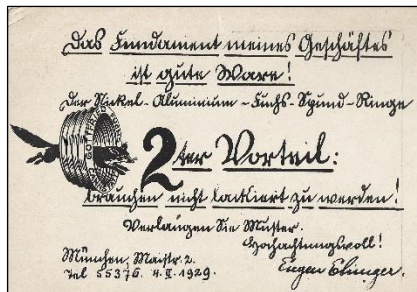 Das Fundament meines Geschäftes
ist gute Ware!
Der Nickel-Aluminium-Fuchs-Spund-Ringe
2ter Vorteil:
brauchen nicht lackiert zu werden!
Verlangen Sie Muster.
Hochachtungsvoll!
München, Maistr. 2.
Tel 55376. 4. II. 1929.
Eugen Ebinger.